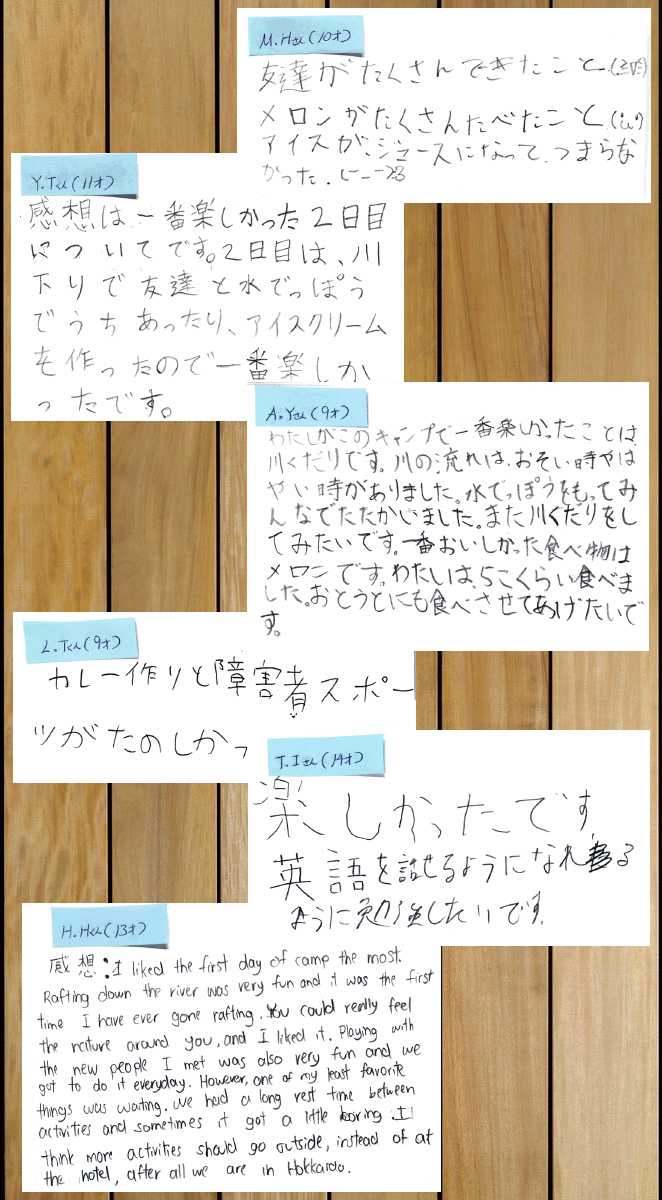 M.Hさん(10才)
友達がたくさんできたこと
メロンがたくさんたべたこと
アイスが、ジュースになって、つまらな
かった。
Y.Tくん(11才)
感想は一番楽しかった2日目
についてです。2日目は、川
下りで友達と水でっぽう
でうちあったり、アイスクリーム
を作ったので一番楽しか
ったです。
A.Yさん(9才)
わたしがこのキャンプで一番楽しかったことは、
川くだりです。川の流れは、おそい時やは
やい時がありました。水でっぽうをもってみ
んなでたたかいました。また川くだりをし
てみたいです。一番おいしかった食べ物は
メロンです。わたしは、5こくらい食べま
した。おとうとにも食べさせてあげたいで
す。
L.Tくん(9才)
カレー作りと障害者スポー
ツがたのしかっ
T.Iさん(14才)
楽しかったです。
英語を話せるようになれる
ように勉強したいです。
H.Hくん(13才)
感想:I liked the first day of camp the most.
Rafting down the river was very fun and it was the first
time I have ever gone rafting. You could really feel
the nature around you, and I liked it. Playing with
the new people I met was also very fun and we
got to do it everyday. However, one of my least favorite
things was waiting. We had a long rest time between
activities and sometimes it got a little boring. I
think more activities should go outside, instead of at
the hotel, after all we are in Hokkaido.